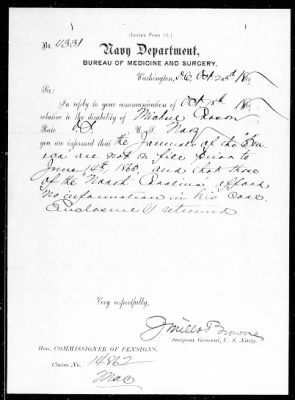 (LETTER FORM 13.)
No. 11331
Navy Department,
BUREAU OF MEDICINE AND SURGERY,
Washington, D.C. Oct 23d 18
Sir:
In reply to your communication of Oct 18th 18
relative to the disability of Michael
U.S. Navy
you are informed that the Journals of the
are not on file prior to
June 14th, 1865, and that those
of the North Carolina afford
no information in his case.
Enclosure returned
Very respectfully,
J Mills Browne
Surgeon General, U. S. Navy.
Hon. COMMISSIONER OF PENSIONS,
Claim No. 14862
Mac